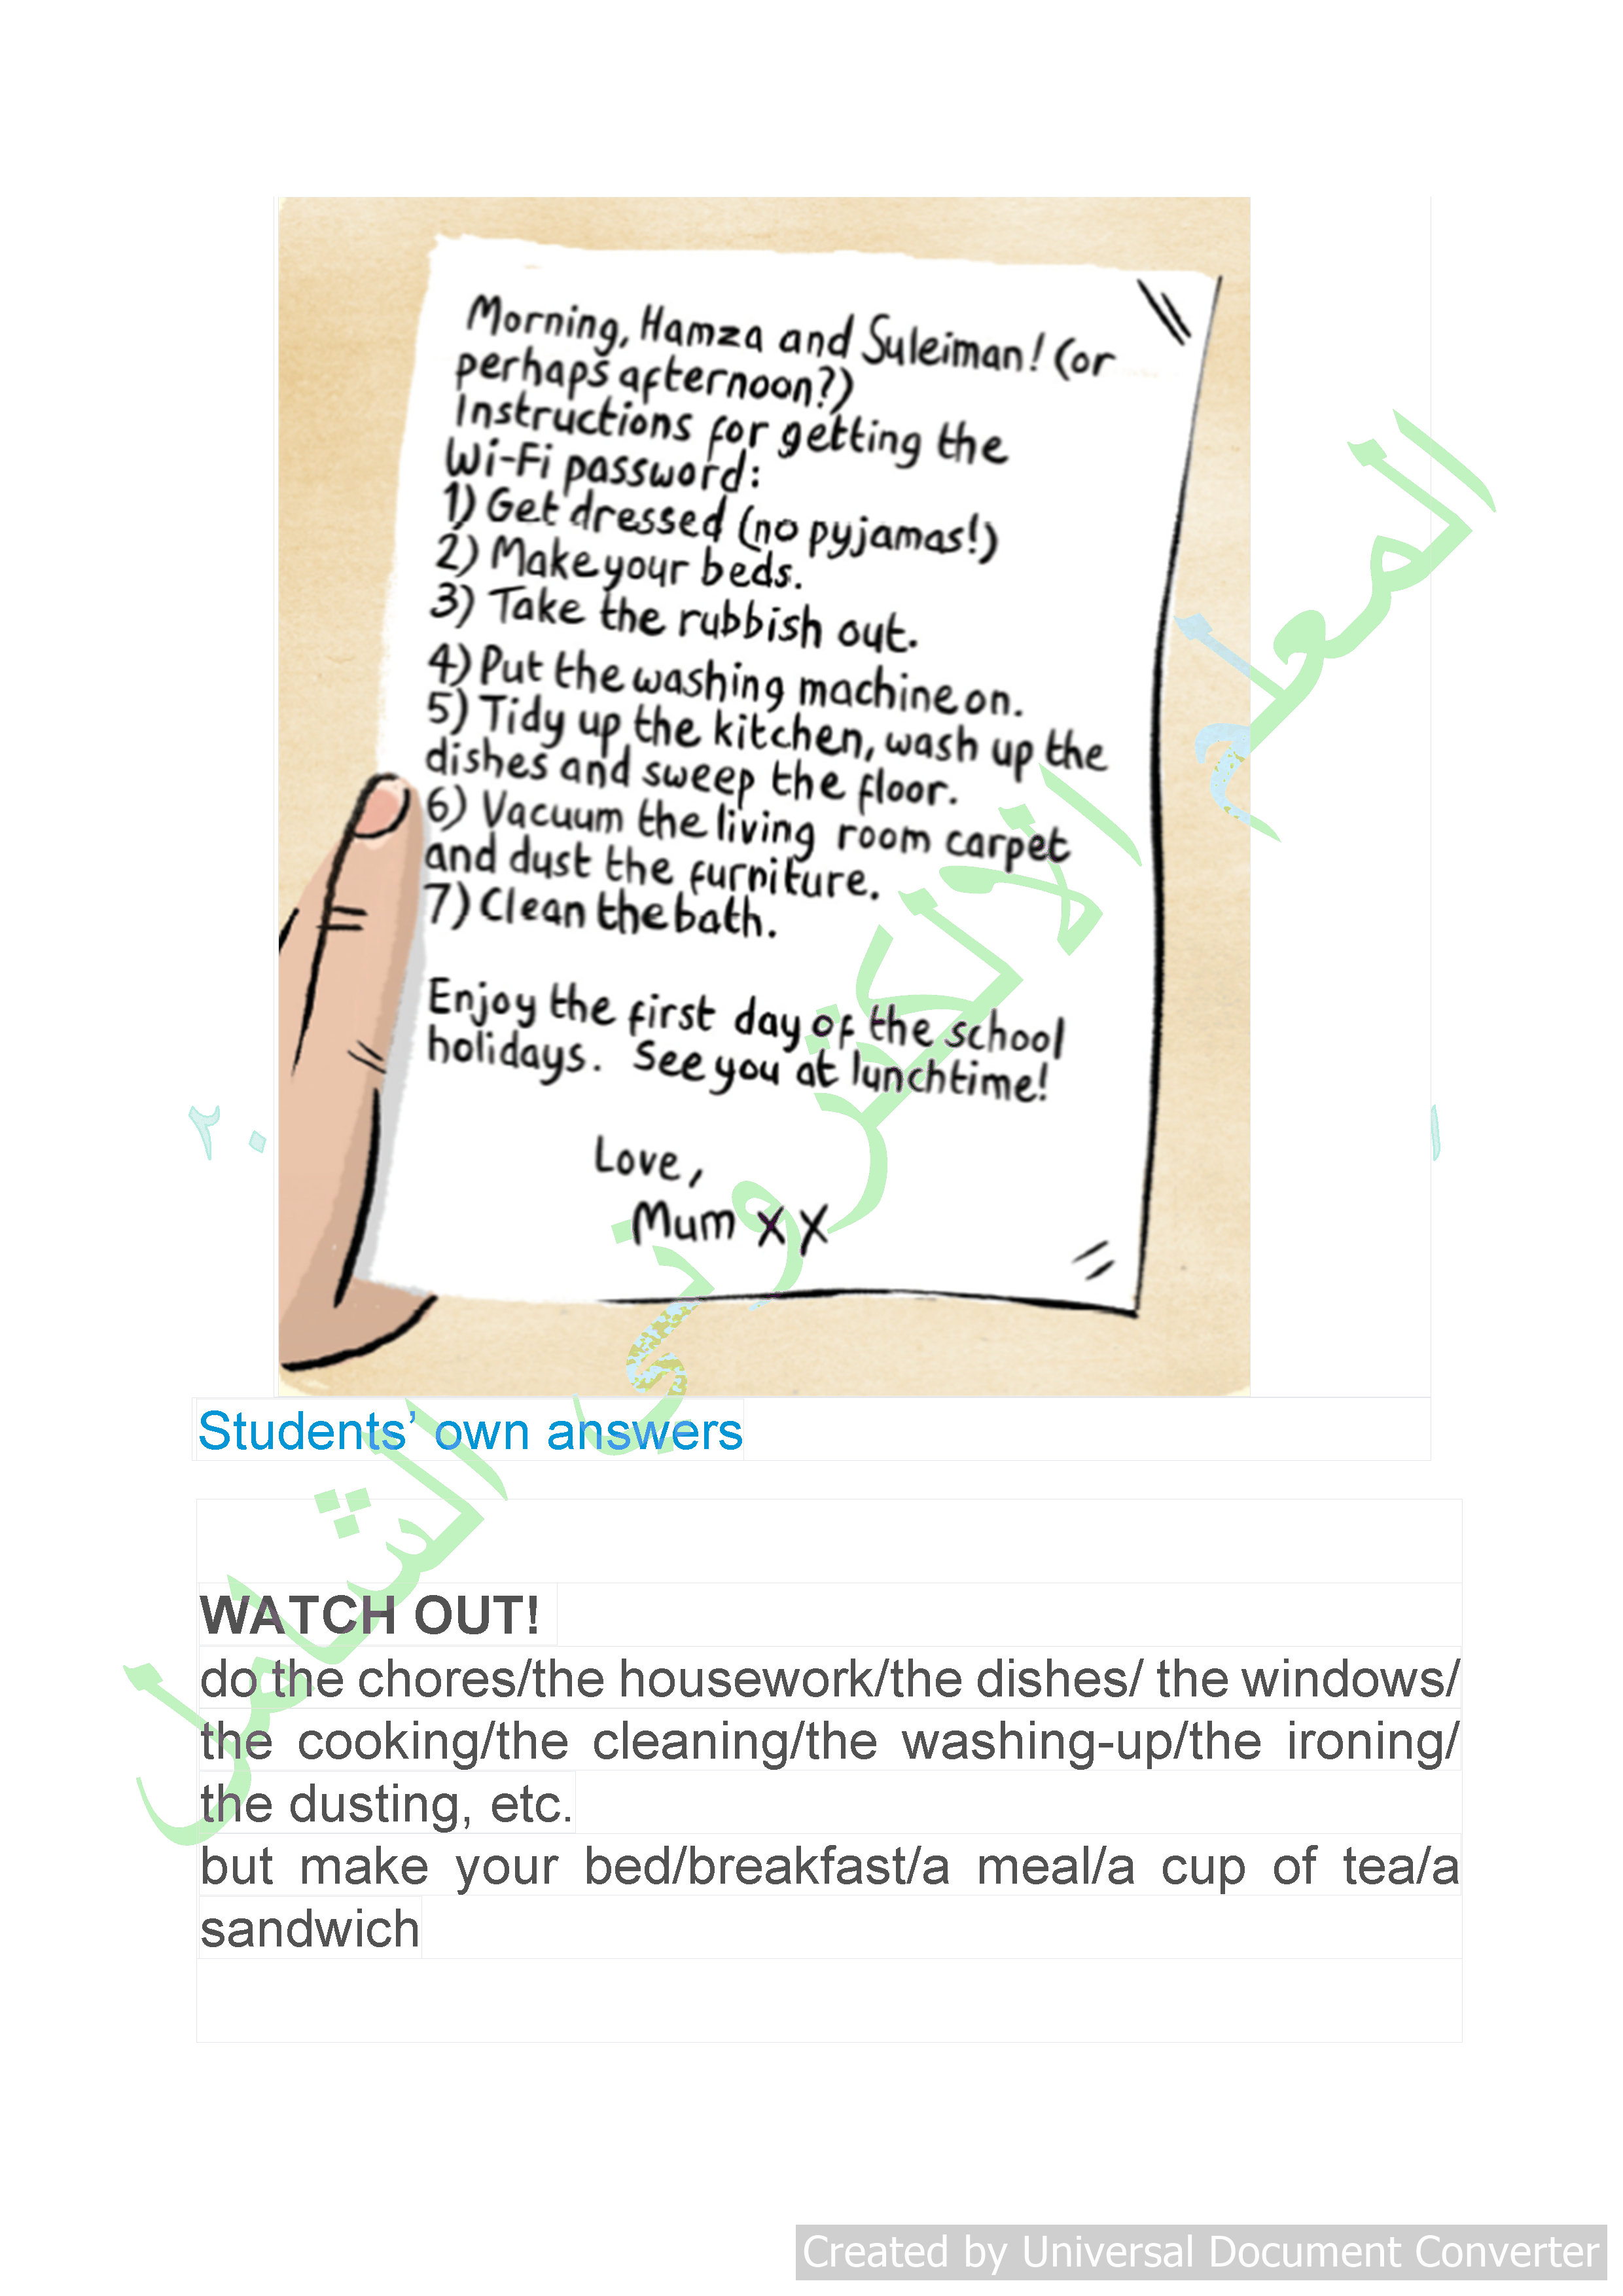 Morning, Hamza and Suleiman! (or
perhaps afternoon?)
Instructions for getting the
Wi-Fi password:
1) Get dressed (no pyjamas!)
2) Make your beds.
3) Take the rubbish out.
4) Put the washing machine on.
5) Tidy up the kitchen, wash up the
dishes and sweep the floor.
6) Vacuum the living room carpet
and dust the furniture.
7) Clean the bath.
Enjoy the first day of the school
holidays. See you at lunchtime!
Love,
Mum XX
المعلم الالكتروني الشامل
٢٠
١
Students’ own answers
WATCH OUT!
do the chores/the housework/the dishes/ the windows/
the cooking/the cleaning/the washing-up/the ironing/
the dusting, etc.
but make your bed/breakfast/a meal/a cup of tea/a
sandwich
Created by Universal Document Converter